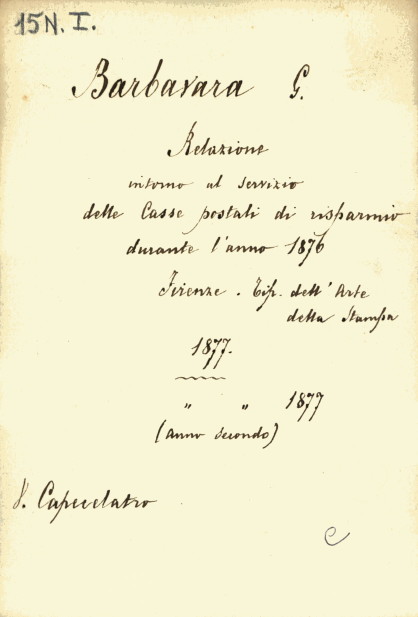 15N. I.
Barbavara G.
Relazione
intorno al servizio
delle Casse postali di risparmio
durante l'anno 1876
Firenze. Tip. dell'Arte
della Stampa
1877.
" " 1877
(anno secondo)
V. Capecelatro
C